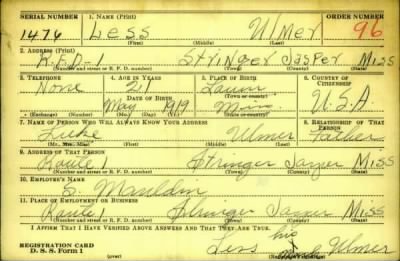 SERIAL NUMBER 1. NAME (Print) ORDER NUMBER
1476 Less Ulmer 96
(First) (Middle) (Last)
2. ADDRESS (Print)
R.F.D-1 Stringer Jasper Miss
(Number and street or R. F. D. number) (Town) (County) (State)
3. TELEPHONE 4. AGE IN YEARS 5. PLACE OF BIRTH 6. COUNTRY OF CITIZENSHIP
None 21 Laurel
DATE OF BIRTH (Town or county)
May 1919 Miss. U.S.A.
(Exchange) (Number) (Mo.) (Day) (Yr.) (State or country)
7. NAME OF PERSON WHO WILL ALWAYS KNOW YOUR ADDRESS 8. RELATIONSHIP OF THAT PERSON
Luke Ulmer Father
(Mr., Mrs., Miss) (First) (Middle) (Last)
9. ADDRESS OF THAT PERSON
Route 1 Stringer Jasper Miss
(Number and street or R. F. D. number) (Town) (County) (State)
10. EMPLOYER'S NAME
S. Mauldin
11. PLACE OF EMPLOYMENT OR BUSINESS
Route 1 Stringer Jasper Miss
(Number and street or R. F. D. number) (Town) (County) (State)
I AFFIRM THAT I HAVE VERIFIED ABOVE ANSWERS AND THAT THEY ARE TRUE.
REGISTRATION CARD Less his Ulmer
D. S. S. Form 1 (over)